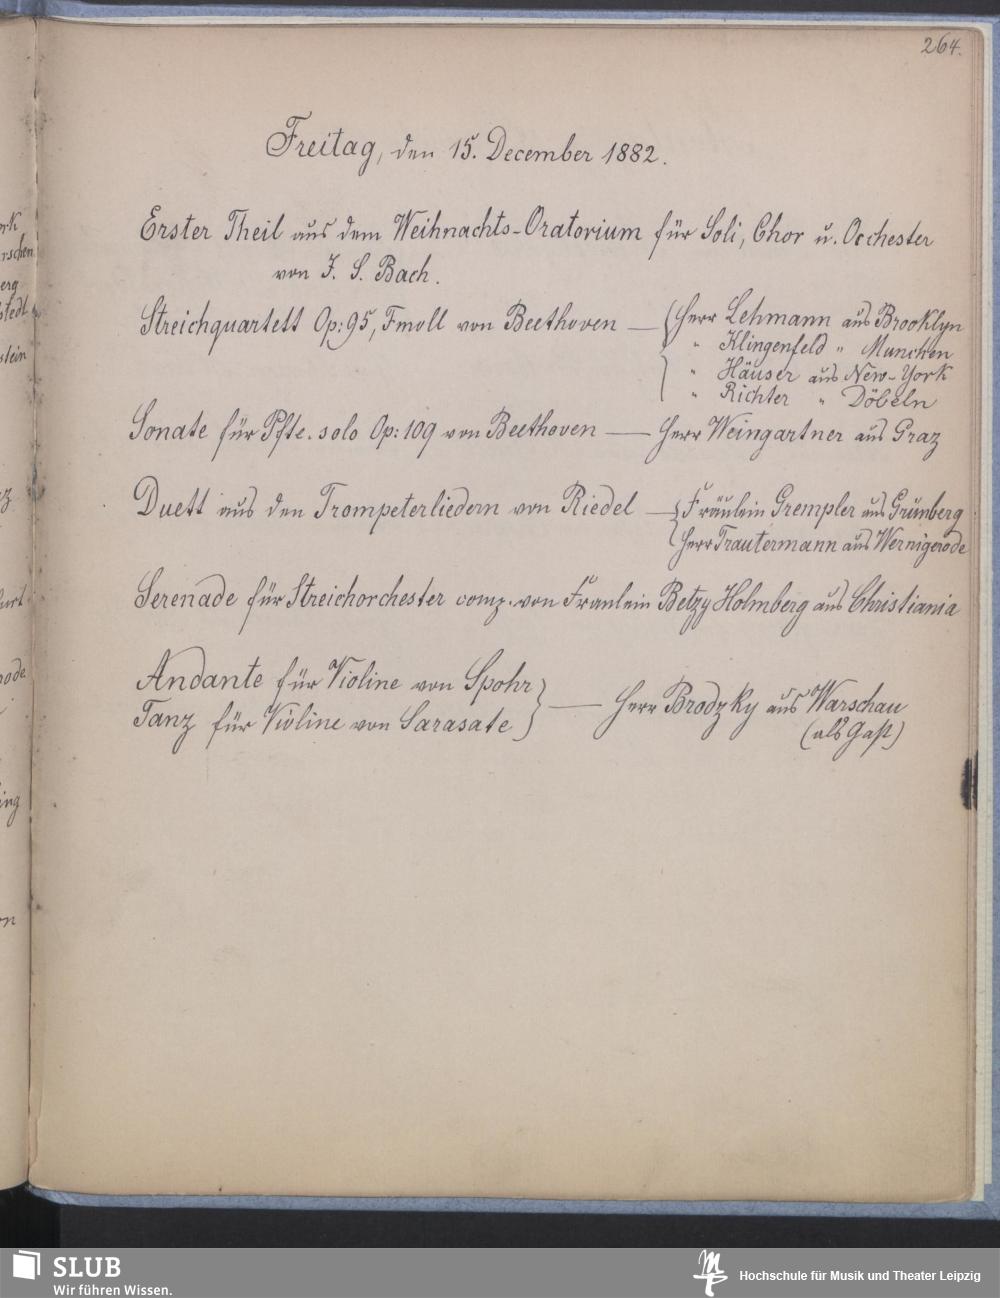 264.
Freitag, den 15. December 1882.
Erster Theil aus dem Weihnachts-Oratorium für Soli, Chor u. Orchester
von J. S. Bach.
Streichquartett Op: 95, Fmoll von Beethoven — Herr Lehmann aus Brooklyn
" Klingenfeld " München
" Häuser aus New-York
" Richter " Döbeln
Sonate für Pfte. solo Op: 109 von Beethoven — Herr Weingartner aus Graz
Duett aus den Trompeterliedern von Riedel — Fräulein Grempler aus Grünberg
Herr Trautermann aus Wernigerode
Serenade für Streichorchester comp. von Fräulein Betzy Holmberg aus Christiania
Andante für Violine von Spohr
Tanz für Violine von Sarasate } — Herr Brodzky aus Warschau
(als Gast)
SLUB
Wir führen Wissen.
Hochschule für Musik und Theater Leipzig